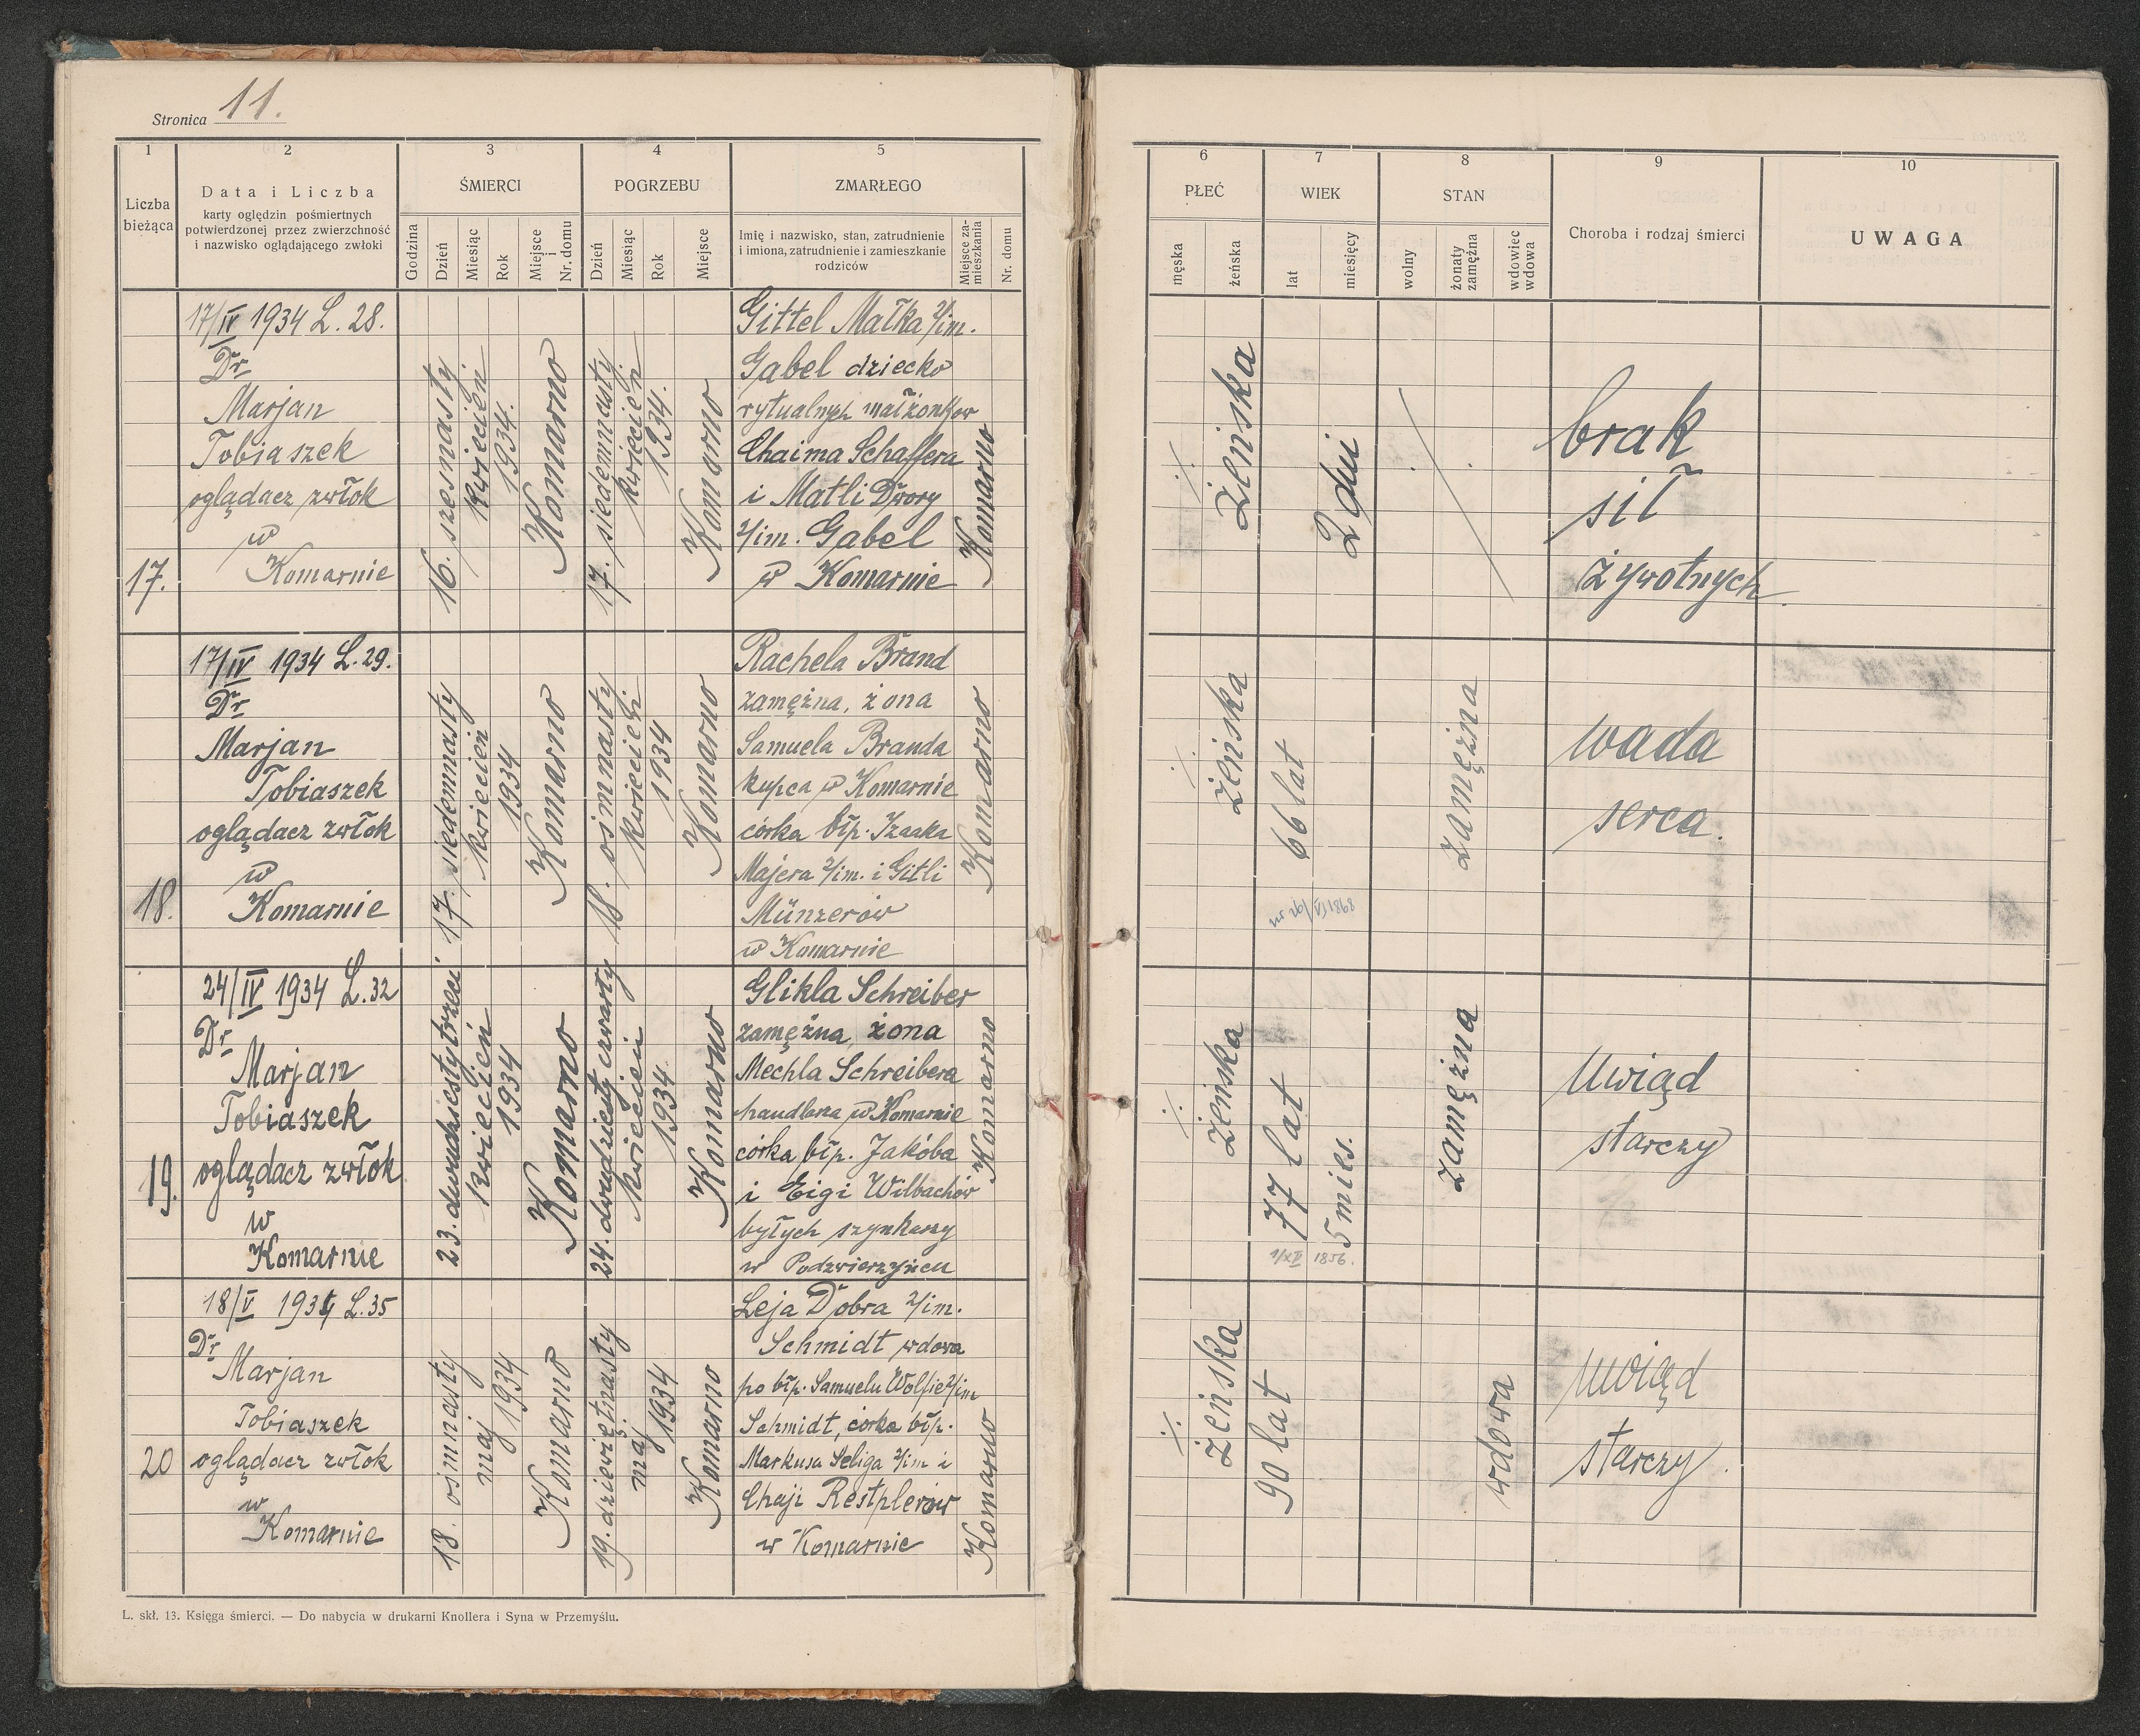 Stronica 11.
1 2 3 4 5
Liczba bieżąca
Data i Liczba
karty oględzin pośmiertnych
potwierdzonej przez zwierzchność
i nazwisko oglądającego zwłoki
ŚMIERCI
Godzina
Dzień
Miesiąc
Rok
Miejsce i Nr. domu
POGRZEBU
Dzień
Miesiąc
Rok
Miejsce
ZMARŁEGO
Imię i nazwisko, stan, zatrudnienie
i imiona, zatrudnienie i zamieszkanie
rodziców
Miejsce zamieszkania
Nr. domu
6 7 8 9 10
PŁEĆ
męska
żeńska
WIEK
lat
miesięcy
STAN
wolny
żonaty zamężna
wdowiec wdowa
Choroba i rodzaj śmierci
UWAGA
17.
17/IV 1934 L. 28.
Dr
Marjan
Tobiaszek
oglądacz zwłok
w
Komarnie
16. szesnasty
kwiecień
1934.
Komarno
17. siedemnasty
kwiecień
1934.
Komarno
Gittel Małka 2/im.
Gabel dziecko
rytualnych małżonków
Chaima Schaffera
i Matli Dwory
2/im. Gabel
w Komarnie
Komarno
żeńska
2 dni
brak
sił
żywotnych.
18.
17/IV 1934 L. 29.
Dr
Marjan
Tobiaszek
oglądacz zwłok
w
Komarnie
17. siedemnasty
kwiecień
1934
Komarno
18. osimnasty
kwiecień
1934
Komarno
Rachela Brand
zamężna, żona
Samuela Branda
kupca w Komarnie
córka błp. Izaaka
Majera 2/im. i Gitli
Münzerów
w Komarnie
Komarno
żeńska
66 lat
zamężna
wada
serca.
19.
24/IV 1934 L. 32
Dr
Marjan
Tobiaszek
oglądacz zwłok
w
Komarnie
23. dwudziestytrzeci
kwiecień
1934
Komarno
24. dwudziesty czwarty
kwiecień
1934.
Komarno
Glikla Schreiber
zamężna, żona
Mechla Schreibera
handlarza w Komarnie
córka błp. Jakóba
i Eigi Wilbachów
byłych szynkarzy
w Podzwierzyńcu
Komarno
żeńska
77 lat
5 mies.
1/XII 1856.
zamężna
Uwiąd
starczy
20
18/V 1934 L. 35
Dr
Marjan
Tobiaszek
oglądacz zwłok
w
Komarnie
18. osimnasty
maj
1934
Komarno
19. dziewiętnasty
maj
1934
Komarno
Leja Dobra 2/im.
Schmidt wdowa
po błp. Samuelu Wolfie 2/im
Schmidt, córka błp.
Markusa Seliga 2/im i
Chaji Restplerów
w Komarnie
Komarno
żeńska
90 lat
wdowa
uwiąd
starczy.
L. skł. 13. Księga śmierci. — Do nabycia w drukarni Knollera i Syna w Przemyślu.